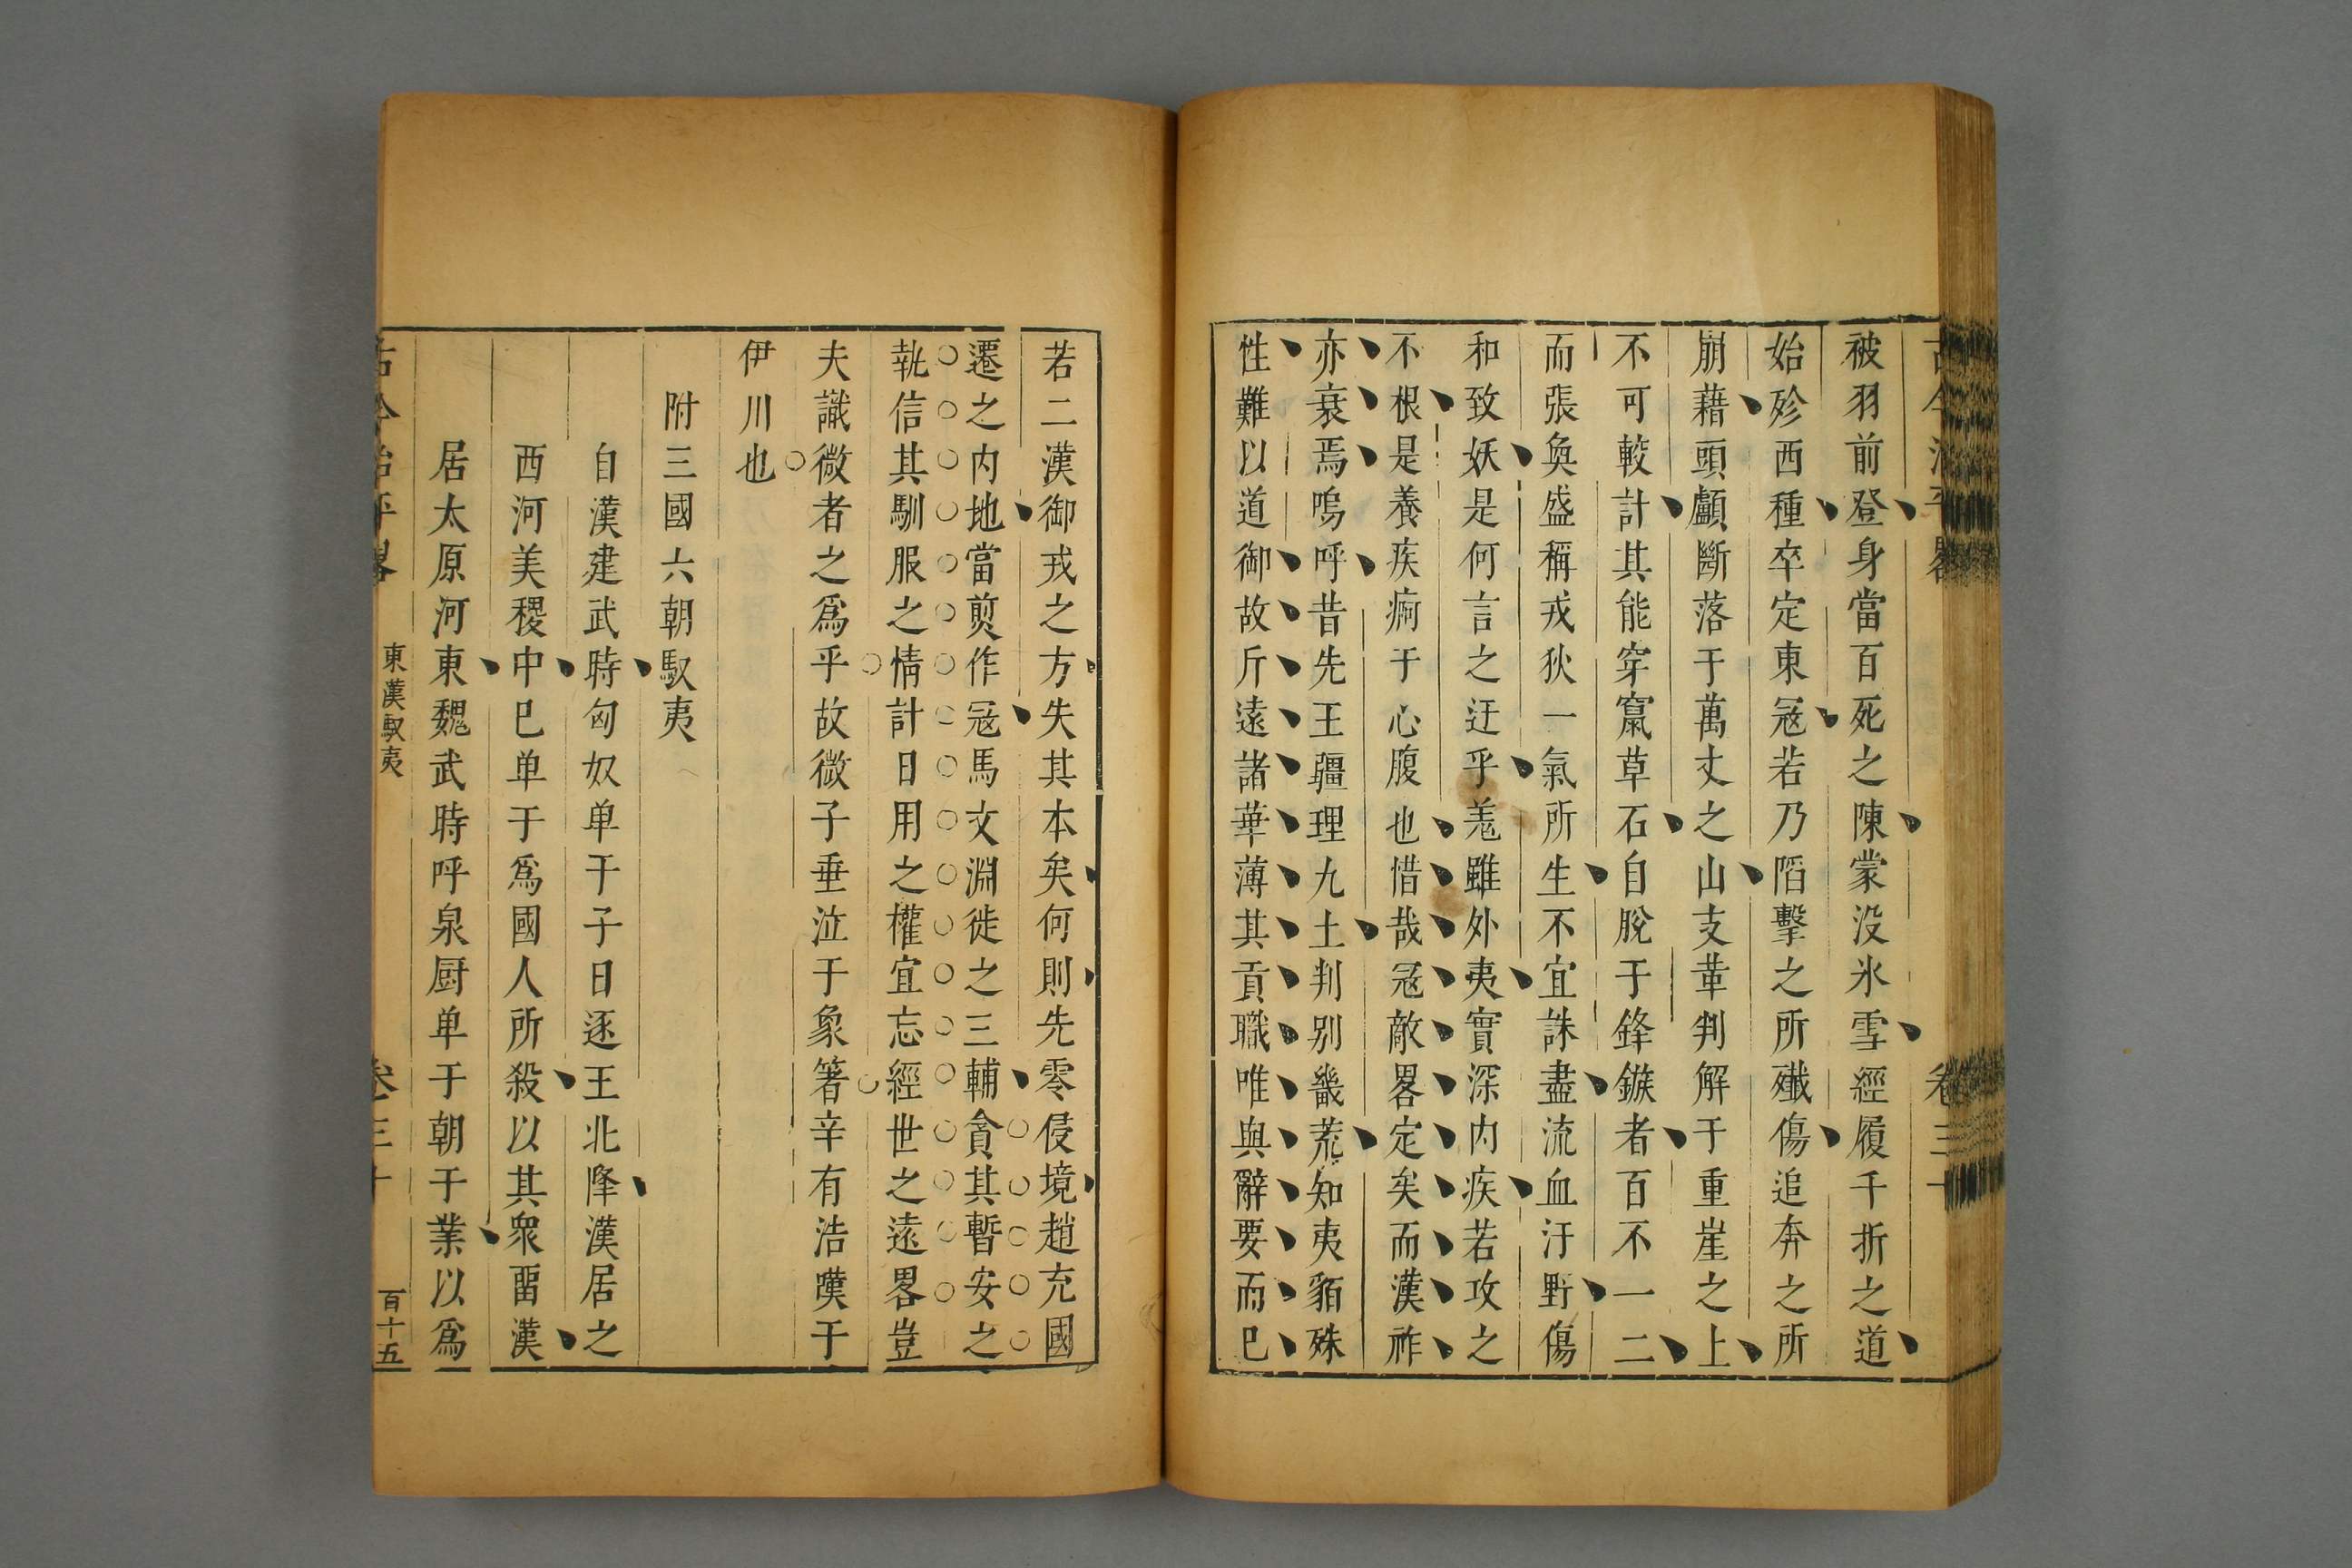 古今治平畧
卷三十
被羽前登身當百死之陳蒙没氷雪經履千折之道
始殄西種卒定東寇若乃陷擊之所殱傷追奔之所
崩藉頭顱斷落于萬丈之山支革判解于重崖之上
不可較計其能穿竄草石自脫于鋒鏃者百不一二
而張奐盛稱戎狄一氣所生不宜誅盡流血汙野傷
和致妖是何言之迂乎羌雖外夷實深内疾若攻之
不根是養疾痾于心腹也惜哉寇敵畧定矣而漢祚
亦衰焉嗚呼昔先王疆理九土判别畿荒知夷貊殊
性難以道御故斥遠諸華薄其貢職唯與辭要而已
若二漢御戎之方失其本矣何則先零侵境趙充國
遷之内地當煎作寇馬文淵徙之三輔貪其暫安之
埶信其馴服之情計日用之權宜忘經世之遠畧豈
夫識微者之爲乎故微子垂泣于象箸辛有浩嘆于
伊川也
附三國六朝馭夷
自漢建武時匈奴单于子日逐王北降漢居之
西河美稷中巳单于爲國人所殺以其衆畱漢
居太原河東魏武時呼泉厨单于朝于業以爲
古今治平畧
東漢馭夷
卷三十
百十五